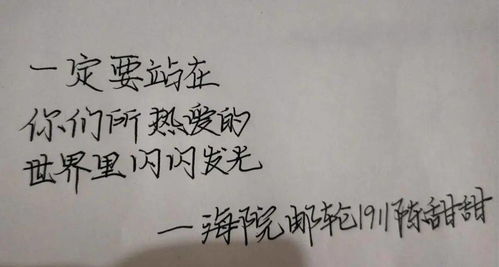 一定要站在
你们所热爱的
世界里闪闪发光
一海院邮轮1911陈甜甜